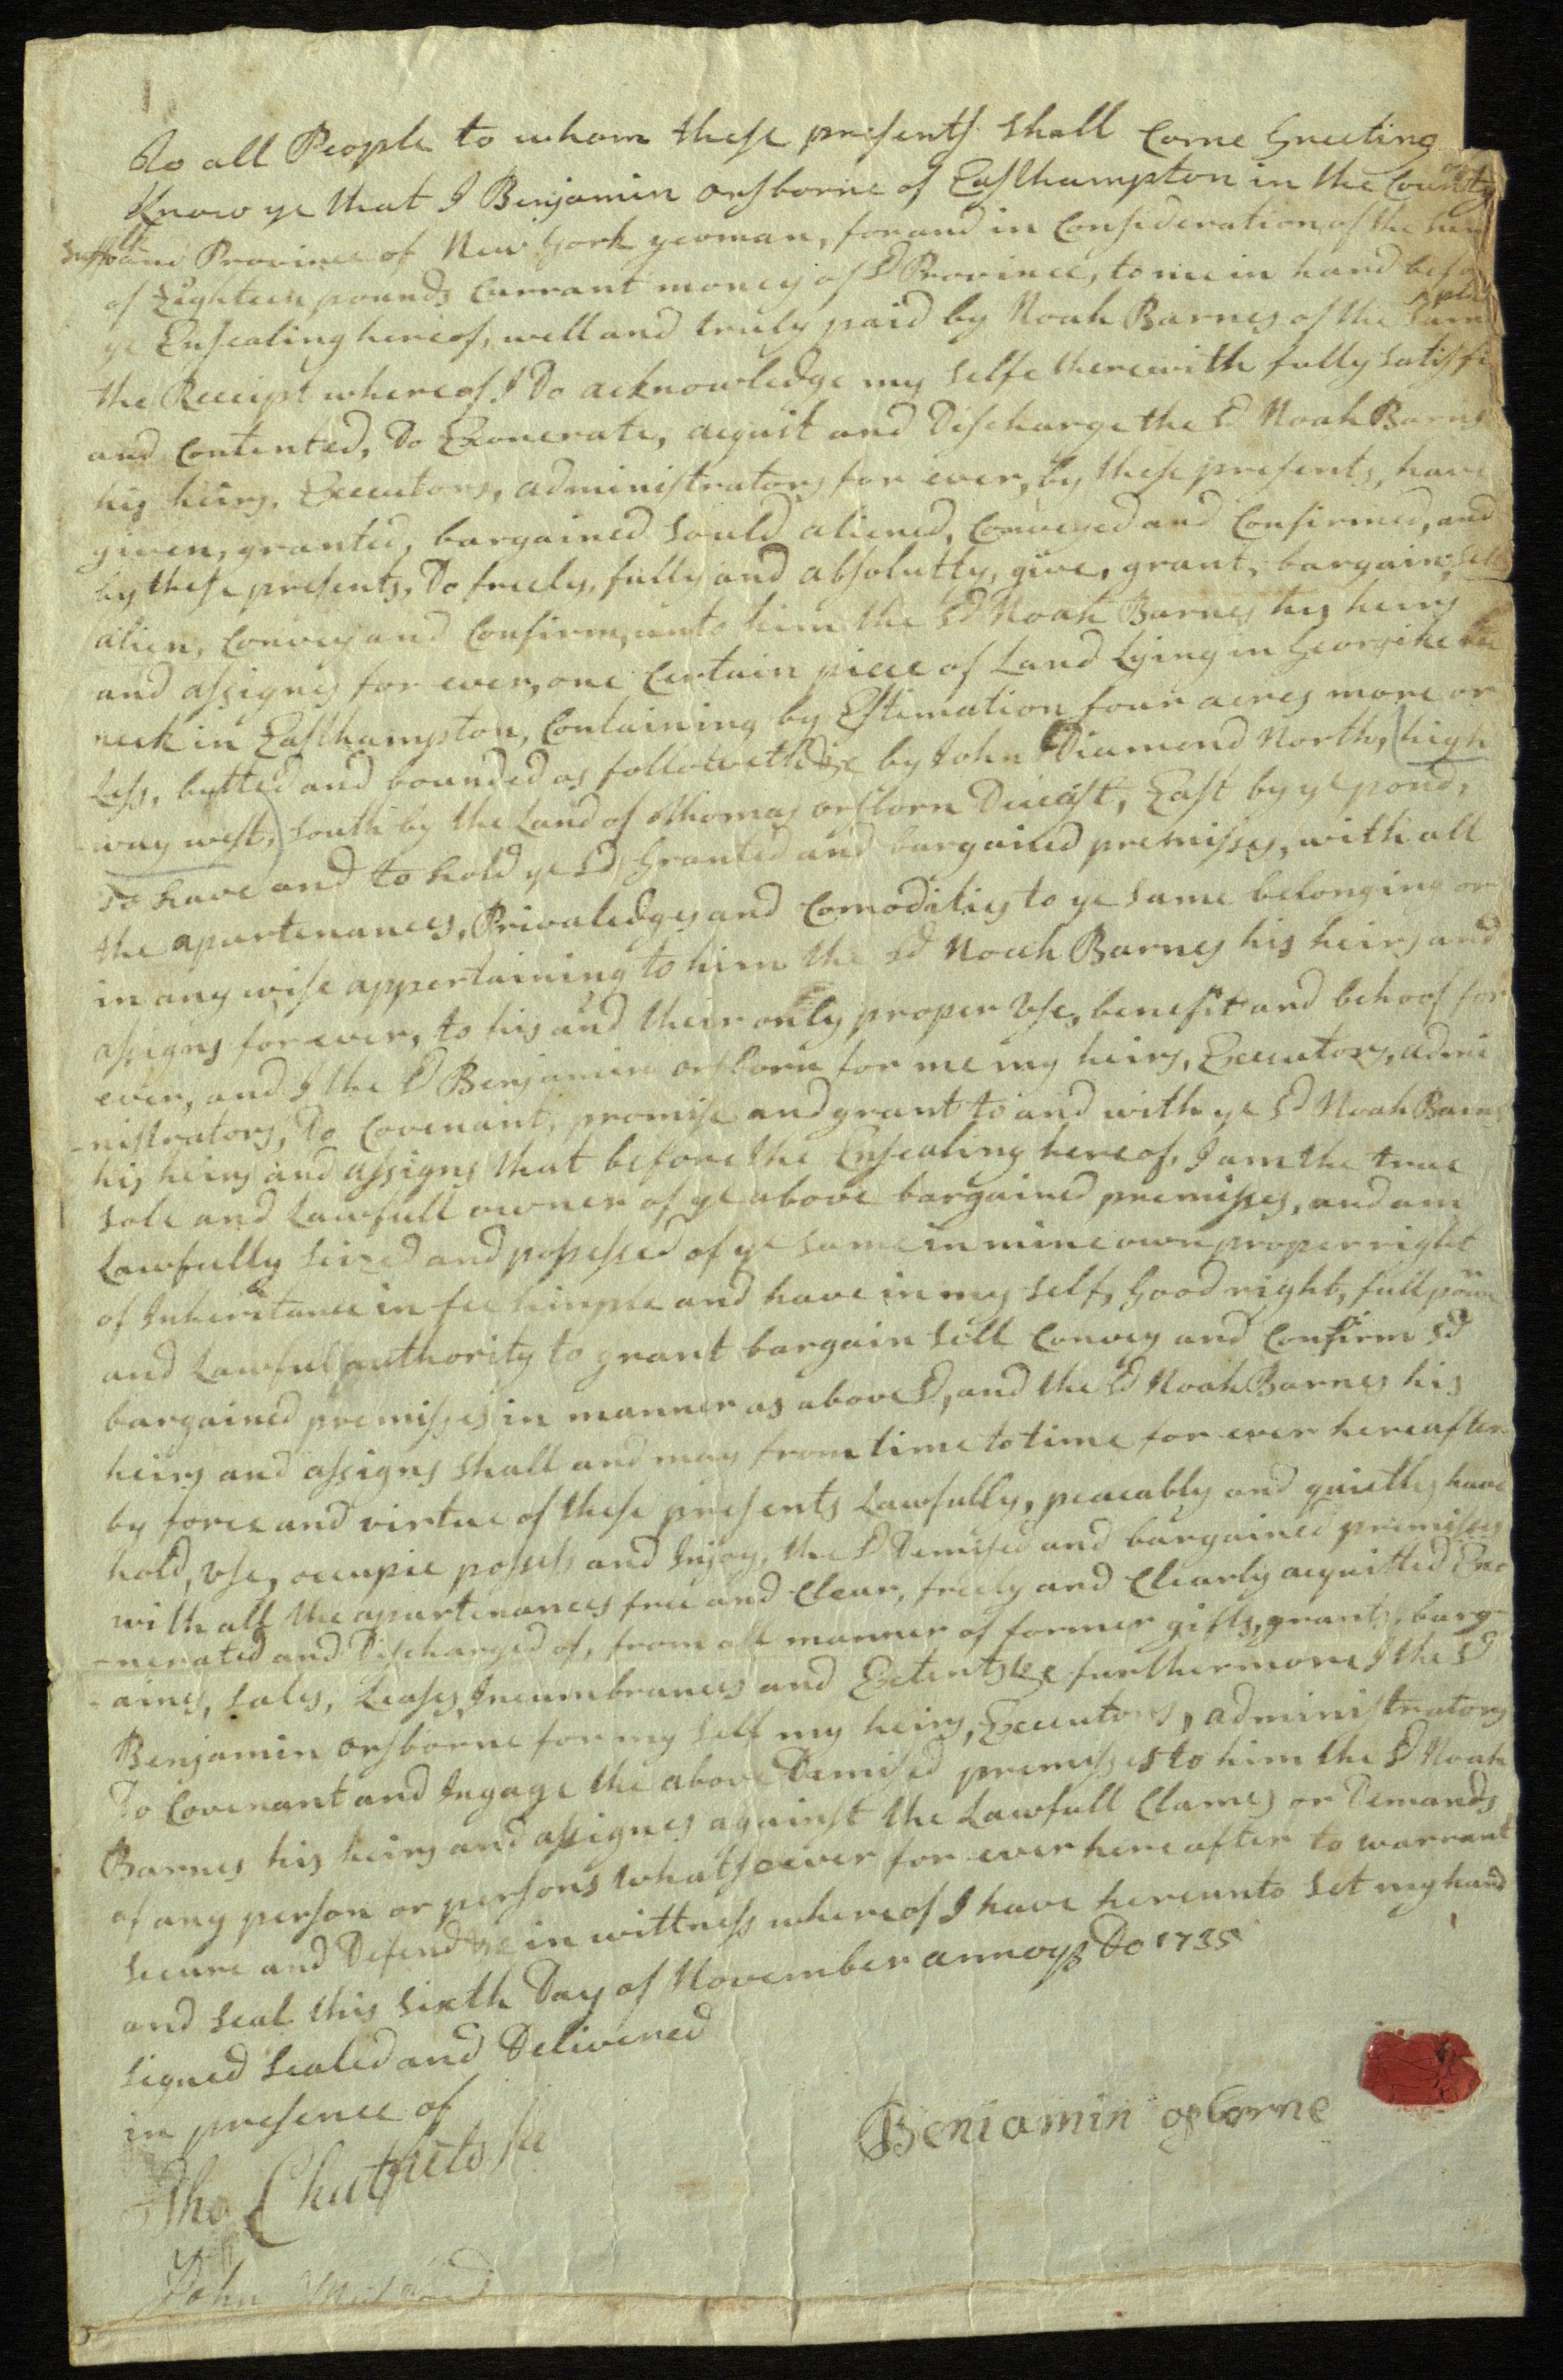 To all People to whom these presents shall Come Greeting
Know ye that I Benjamin orsborne of Easthampton in the County of
Suffolk and Province of New York yeoman, for and in Consideration of the
of Eighteen pounds Currant money of sd Province, to me in hand befo
ye Ensealing hereof, well and truly paid by Noah Barnes of the Same
the Receipt whereof I Do acknowledge my selfe therewith fully satisfi
and Contented, Do Exonerate, acquit and Discharge the sd Noah Barnes
his heirs, Executors, administrators for ever, by these presents, have
given, granted, bargained sould aliened, Conveyed and Confirmed, and
by these presents, Do freely, fully and absolutly, give, grant, bargain, sell
alien, Convey and Confirm, unto him the sd Noah Barnes his heirs
and assignes for ever, one Certain piece of Land Lying in Georgike
neck in Easthampton, Containing by Estimation four acres more or
Less, butted and bounded as followeth &c by John Diamond North, (high
way west,) south by the Land of Thomas orsborn Deceast, East by ye pond,
To have and to hold ye sd Granted and bargained premisses, with all
the apurtenances, Privaledges and Comodities to ye same belonging or
in any wise appertaining to him the sd Noah Barnes his heirs and
assigns for ever, to his and their only proper Use, benefit and behoof for
ever, and I the sd Benjamin orsborn for me my heirs, Executors, admi
-nistrators, Do Covenant, promise and grant to and with ye sd Noah Barnes
his heirs and assigns that before the Ensealing hereof, I am the true
sole and Lawfull owner of ye above bargained premisses, and am
Lawfully seized and possessed of ye same in mine own proper right
of Inheritance in fee simple and have in my self, Good right, full power
and Lawful authority to grant bargain sell Convey and Confirm sd
bargained premisses in manner as above sd, and the sd Noah Barnes his
heirs and assigns shall and may from time to time for ever hereafter
by force and virtue of these presents Lawfully, peaceably and quietly have
hold, use, occupie possess and Injoy, the sd Demised and bargained premisses
with all the apurtenances free and Clear, freely and Clearly acquitted Exo
-nerated and Discharged of, from all manner of former gifts, grants, barg
-aines, sales, Leases, Incumbrances and Extents &c furthermore I the sd
Benjamin orsborne for my self my heirs, Executors, administrators
Do Covenant and Ingage the above Demised premisses to him the sd Noah
Barnes his heirs and assignes against the Lawfull Clames or Demands
of any person or persons whatsoever for ever hereafter to warrant
secure and Defend &c in wittness whereof I have hereunto set my hand
and seal this sixth Day of November annoqs Do 1735
signed sealed and Delivered
in presence of
Beniamin osborne
Tho Chatfield
John